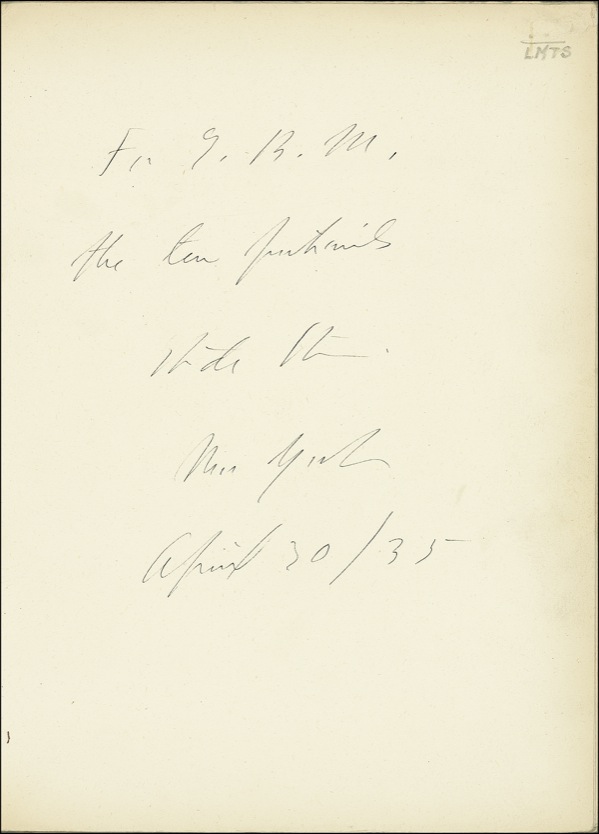 LMTS
For G. B. M.,
the ten portraits
New York
April 30/35